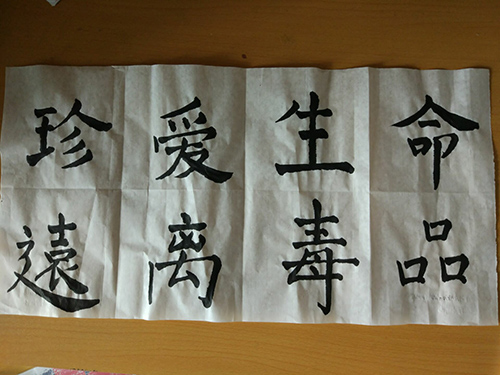 珍爱生命
遠离毒品